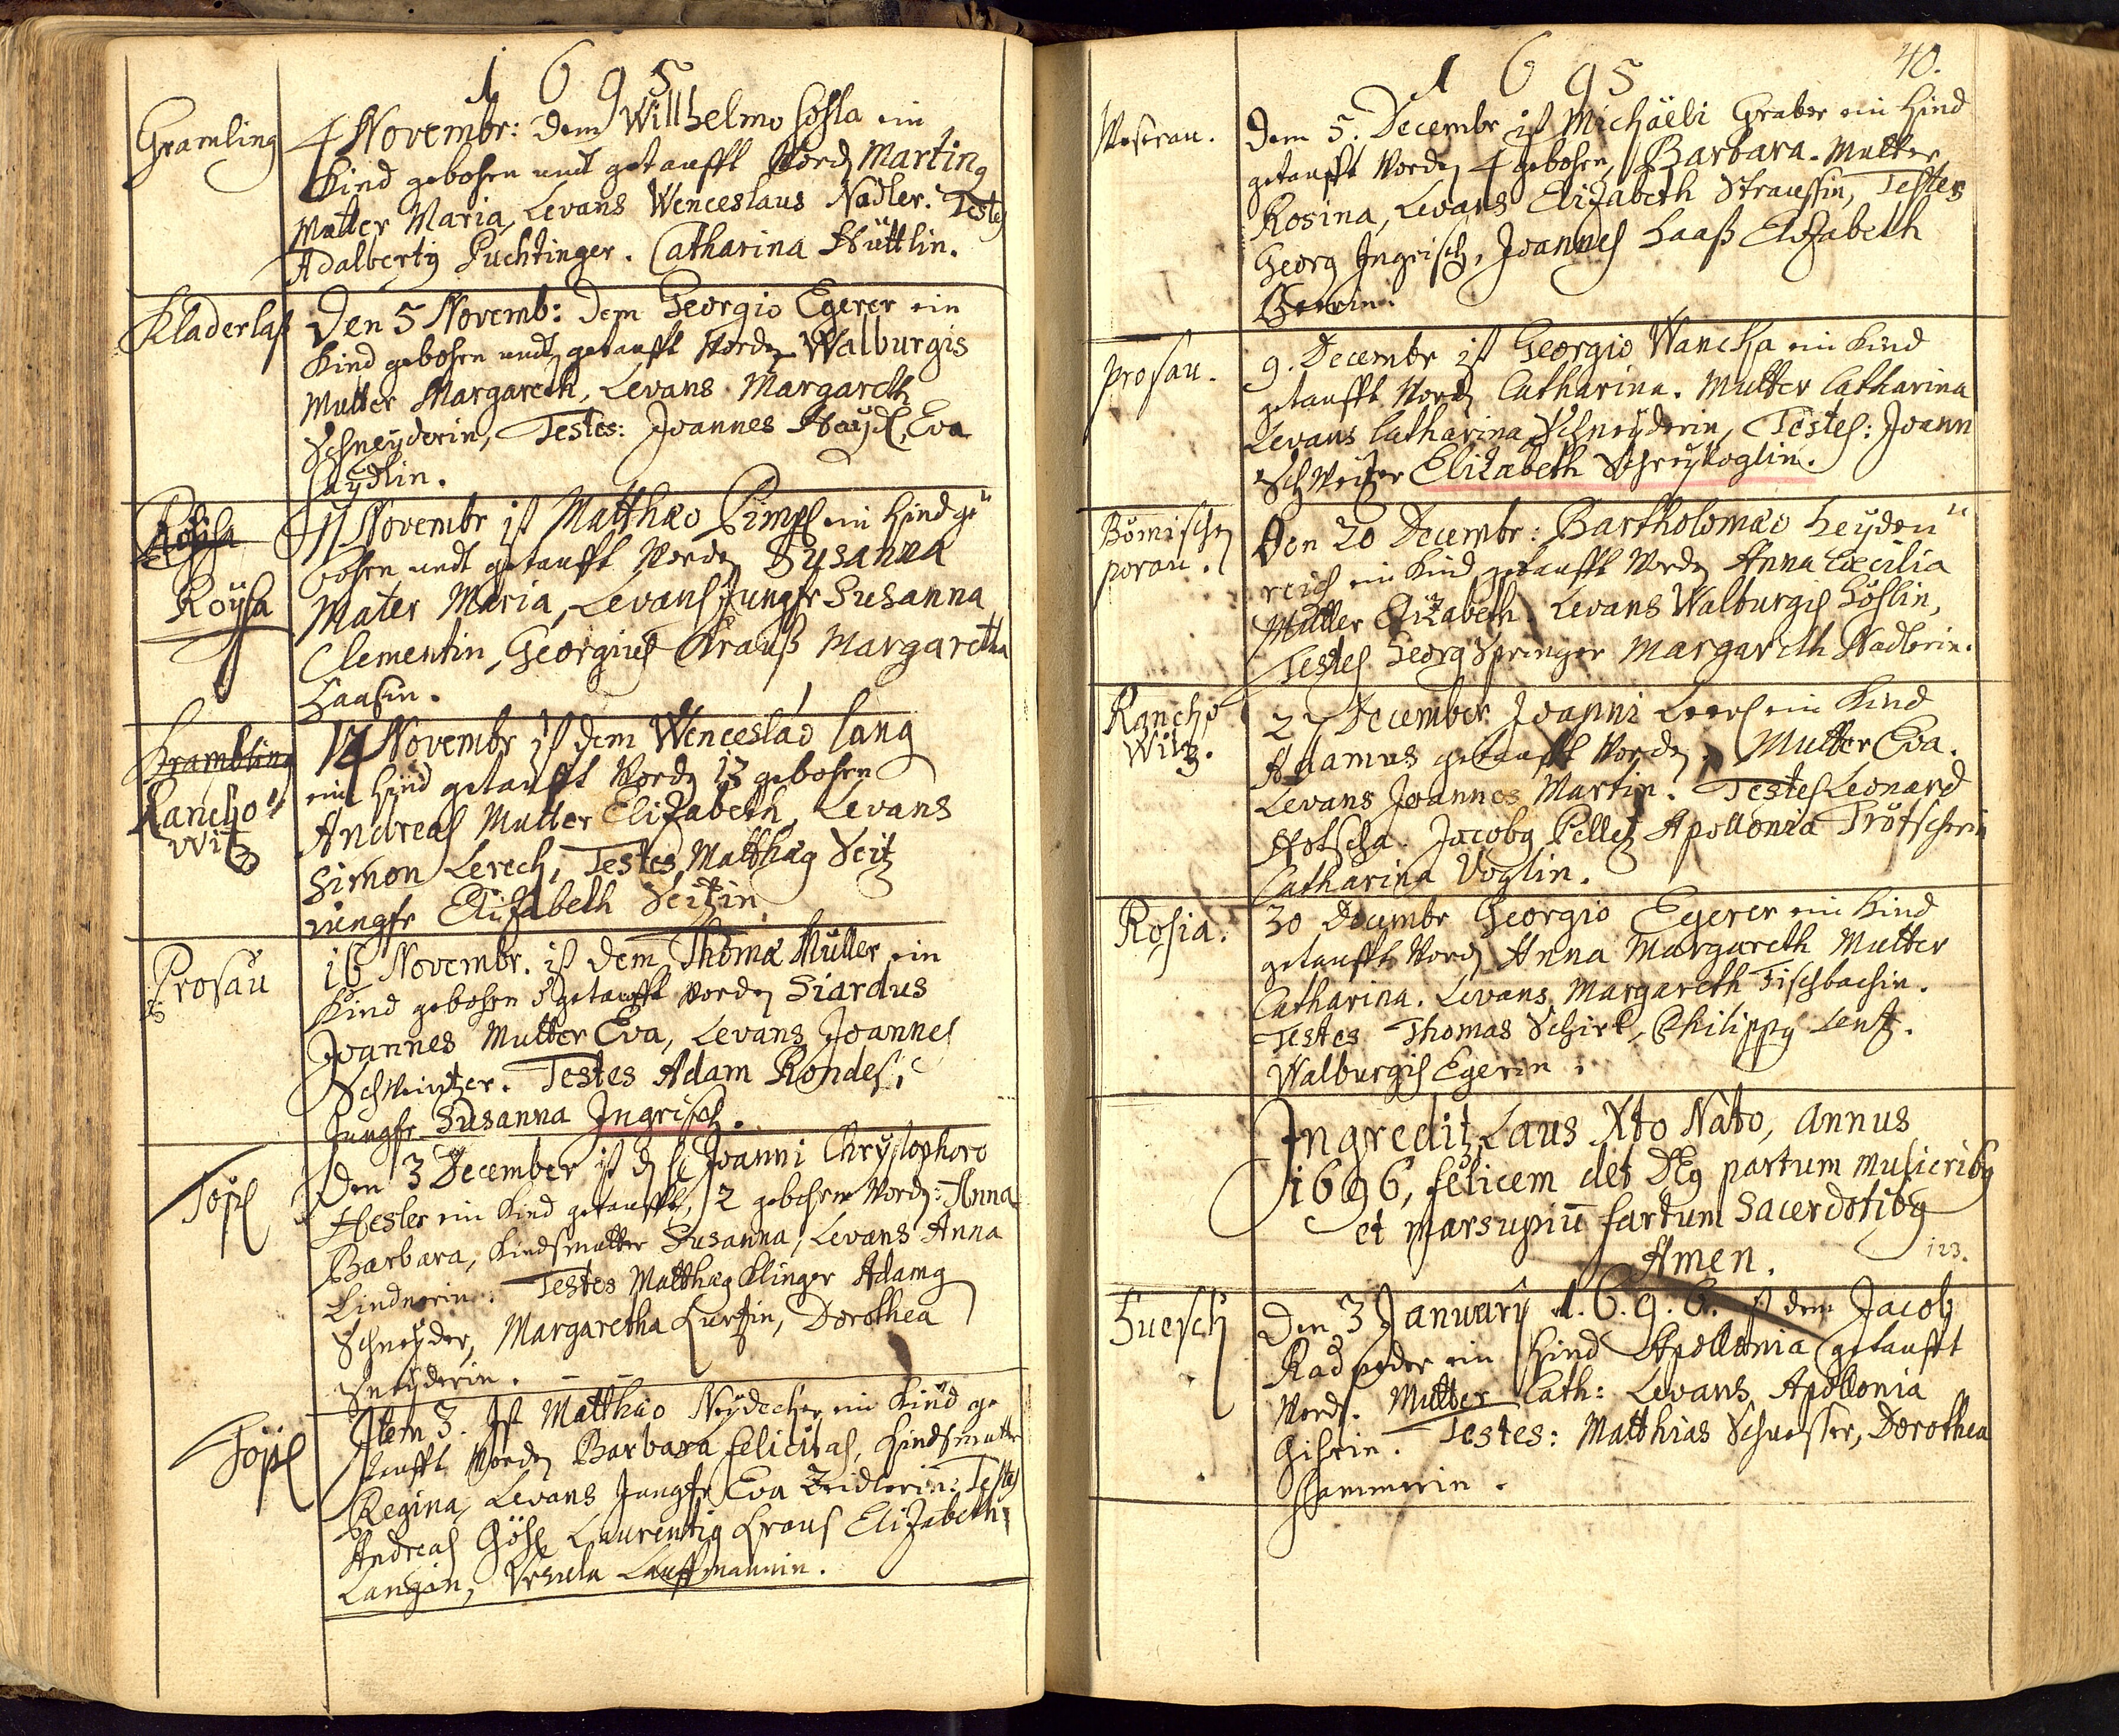 1695
Gramling
4 Novembr: dem Willhelmo Hossla ein
Kind gebohren undt getaufft Wordn Martin9
Mutter Maria, Levans Wenceslaus Nadler. Testes
Adalbert9 Puchtinger. Catharina Hüttlin.
Kladerlaß
Den 5 Novemb: dem Georgio Egerer ein
Kind gebohren undt getaufft Worden Walburgis
Mutter Margareth, Levans Margareth
Schneÿderin, Testes: Joannes Haÿdl, Eva
Roÿsa
11 Novembr ist Matthæo Pimpl ein Kind ge"
bohren undt getaufft Worden Susanna
Mater Maria, Levans Jungfr Susanna
Clementin, Georgius Krauß Margaretha
Haasin.
Krambling
Rancho"
witz
14 Novembr ist dem Wenceslao Lang
ein Kind getaufft Wordn 13 gebohren
Andreas Mutter Elizabeth, Levans
Simon Lerech, Testes Matthæ9 Seitz
jungfr Elizabeth Seitzin
Prosau
16 Novembr. ist dem Thomæ Müller ein
Kind gebohren getaufft Worden Siardus
Joannes Mutter Eva, Levans Joannes
Schweintzer. Testes Adam Rondes,
Jungfr Susanna Ingrisch.
Töpl
Den 3 December ist Joanni Chrÿstophoro
Hesler ein Kind getaufft, 2 gebohren Wordn: Anna
Barbara, Kindsmutter Susanna, Levans Anna
Lindnerin. Testes Matthæ9 Klinger Adam9
Schneÿder, Margaretha Kurtzin, Dorothea
Sneÿderin.
Töpl
Item 3. Ist Matthæo Neÿdecher ein Kind ge
taufft Worden Barbara Felicitas, Kindsmutter
Regina, Levans Jungfr Eva Zeidlerin: Testes
Andreas Gösl Laurenti9 Kraus Elizabeth
Langin, Vrsula Kauffmannin.
1695
40.
Weserau.
Dem 5. Decembr ist Michäeli Graber ein Kind
getaufft Worden 4 gebohren, Barbara. Mutter
Rosina, Levans Elizabeth Straussin, Testes
Georg Ingrisch, Joannes Haaß Elizabeth
Prosau.
9. Decembr ist Georgio Wancha ein Kind
getaufft Wordn Catharina. Mutter Catharina
Levans Catharina Schneÿderin, Testes: Joann
Schweitzer Elizabeth Schreÿvoglin.
Bömischn
porau.
Den 20 Decembr: Bartholomæo Heÿden"
reich ein Kind getaufft Worden Anna Cæcilia
Mutter Elizabeth. Levans Walburgis Höslin,
Testes Georg Springer Margareth Nadlerin.
Rancho"
Witz.
27 December Joanni Leers ein Kind
Adamus getaufft Worden. Mutter Eva.
Levans Joannes Martin. Testes Leonard
Hotscha. Jacob9 Pelletz Apollonia Trötscherin
Catharina Voglin.
Rosia.
30 Decembr Georgio Egerer ein Kind
getaufft Wordn Anna Margareth Mutter
Catharina. Levans Margareth Fischbachin.
Testes Thomas Schirl, Philipp9 Lentz.
Walburgis Egerin.
Ingreditz Laus Xto Nato, annus
1696, felicem det DE9 partum mulierib9
et marsupiū fartum Sacerdotib9
Amen.
123.
Huesch
Den 3 Januarÿ 1.6.9.6. ist dem Jacob
Kind Apollonia getaufft
Wordn. Mutter Cath: Levans Apollonia
Testes: Matthias Schuester, Dorothea
Hammerin.